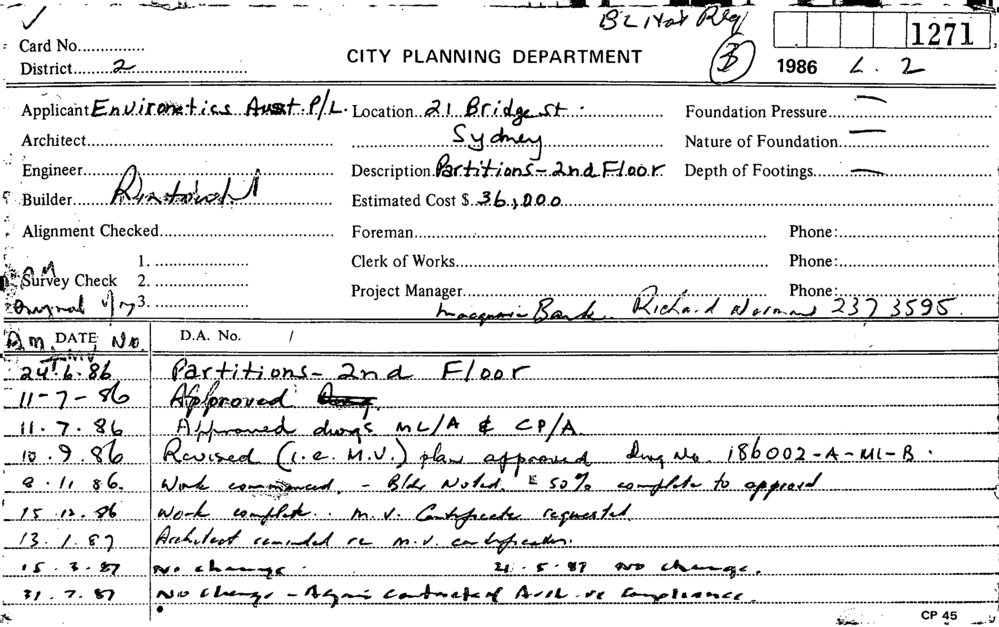 ✓ BL Not Req
Card No.............. 1271
District....2.... CITY PLANNING DEPARTMENT 3 1986 L. 2
Applicant Environetics Aust. P/L. Location.. 21 Bridge St. Foundation Pressure.... —
Architect.... Sydney Nature of Foundation.... —
Engineer.... Description. Partitions - 2nd Floor Depth of Footings.... —
Builder.... Estimated Cost $. 36,000
Alignment Checked.... Foreman.... Phone:....
1. .... Clerk of Works.... Phone:....
Survey Check 2. ....
3. .... Project Manager.... Phone:....
Original Macquarie Bank. Richard Norman 237 3595.
DATE No. D.A. No. /
24.6.86 Partitions - 2nd Floor
11-7-86 Approved
11.7.86 Approved dwgs ML/A & CP/A
10.9.86 Revised (i.e. M.V.) plan approved Dwg No. 186002-A-ML-B.
9.11.86. Work commenced. - Bldr Noted. 50% complete to approval
15.12.86 Work complete. M.V. Certificate requested
13.1.87 Architect reminded re M.V. certification.
15.3.87 No change. 21.5.87 No change.
31.7.87 No change - Again contacted Arch. re Compliance.
CP 45